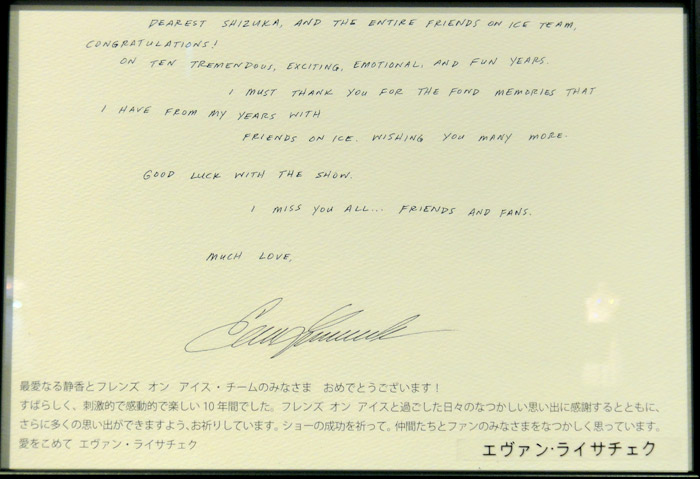 DEAREST SHIZUKA, AND THE ENTIRE FRIENDS ON ICE TEAM,
CONGRATULATIONS!
ON TEN TREMENDOUS, EXCITING, EMOTIONAL, AND FUN YEARS.
I MUST THANK YOU FOR THE FOND MEMORIES THAT
I HAVE FROM MY YEARS WITH
FRIENDS ON ICE. WISHING YOU MANY MORE.
GOOD LUCK WITH THE SHOW.
I MISS YOU ALL... FRIENDS AND FANS.
MUCH LOVE,
最愛なる静香とフレンズ オン アイス・チームのみなさま おめでとうございます！
すばらしく、刺激的で感動的で楽しい10年間でした。フレンズ オン アイスと過ごした日々のなつかしい思い出に感謝するとともに、
さらに多くの思い出ができますよう、お祈りしています。ショーの成功を祈って。仲間たちとファンのみなさまをなつかしく思っています。
愛をこめて エヴァン・ライサチェク
エヴァン・ライサチェク